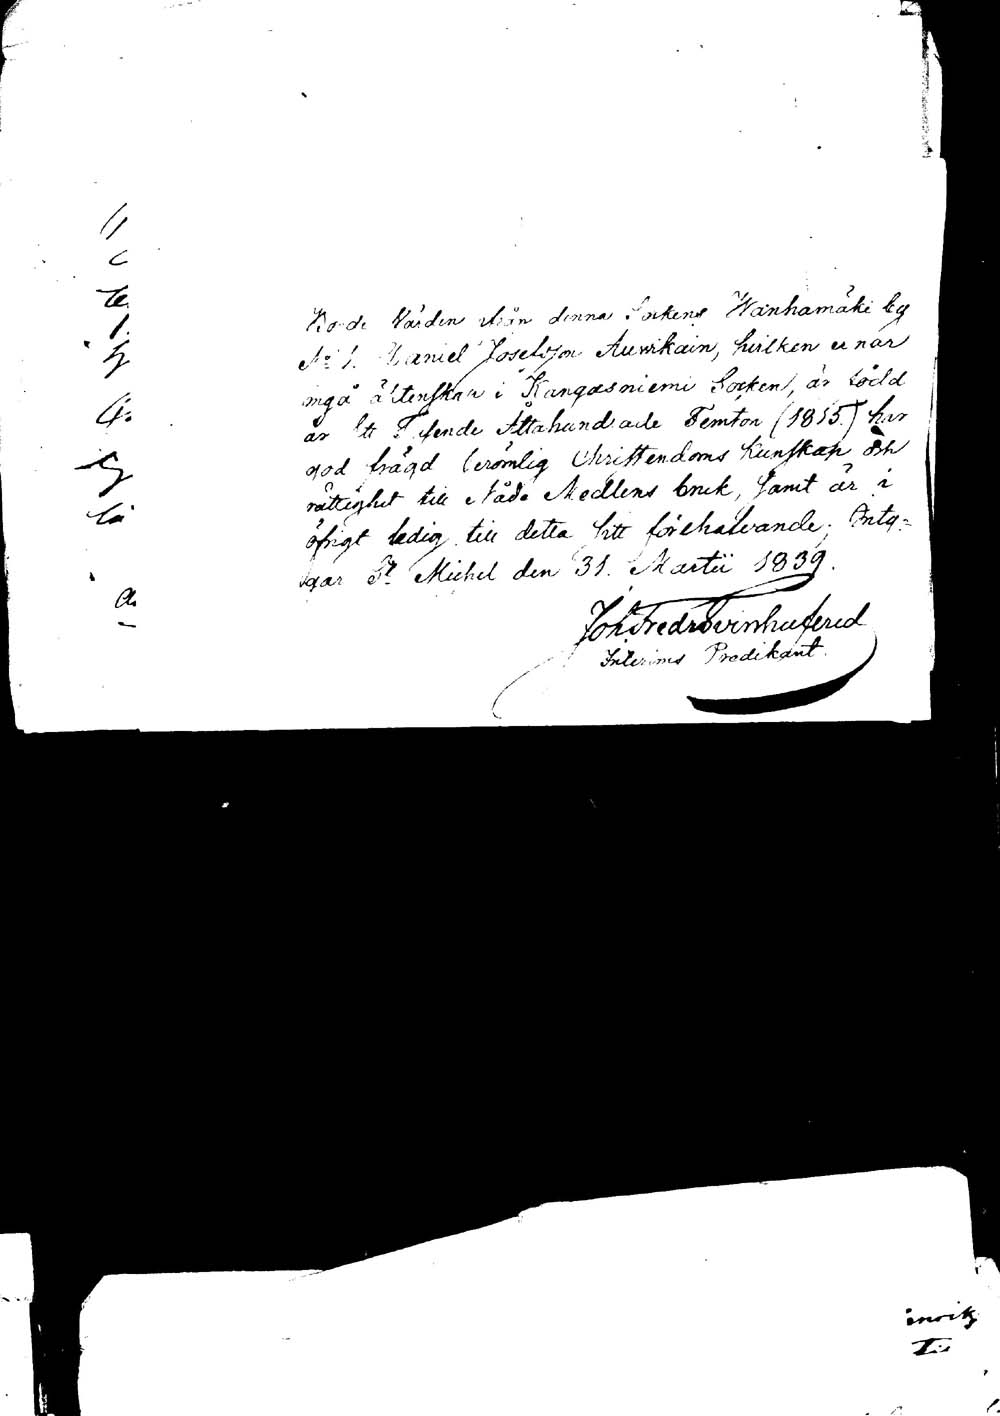 Bonde Wärden ifrån denna Sockens Wanhamäki by
No 1. Daniel Josefsson Auvikain, hvilken ernar
ingå äktenskap i Kangasniemi Socken, är född
år Ett Tusende Åttahundrade Femton (1815.) har
god frägd berömlig Christendoms kunskap och
rättighet till Nåde Medlens bruk, samt är i
öfrigt ledig till detta sitt förehafvande; Inty=
gar St Michel den 31. Martii 1839.
Joh. Fredr Svinhufvud
Interims Predikant.